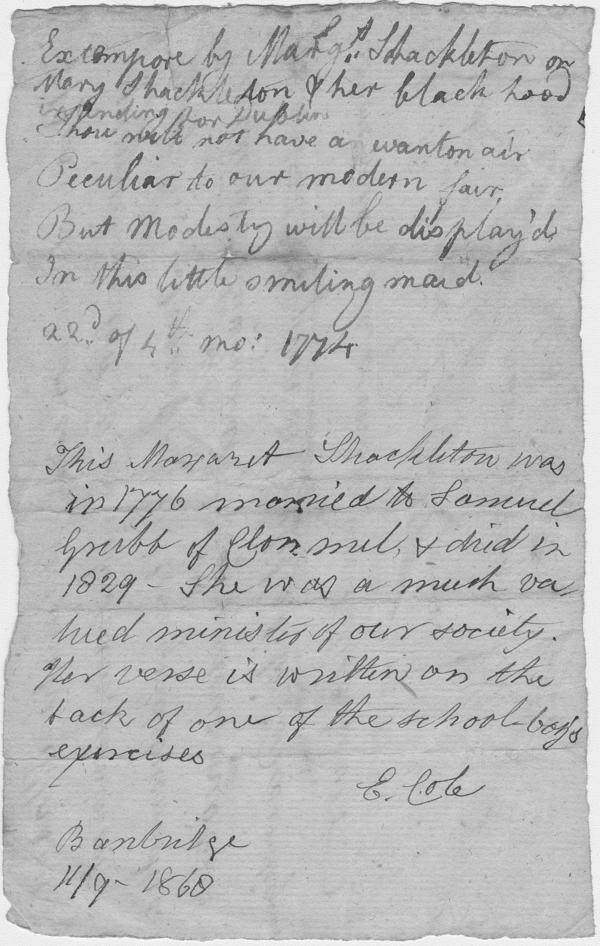 Extempore by Margt. Shackleton on
Mary Shackleton & her black hood
intending for Dublin
Thou wilt not have a wanton air
Peculiar to our modern fair,
But Modesty will be display'd
In this little smiling maid.
22d. of 4th. mo: 1774
This Margaret Shackleton was
in 1776 married to Samuel
Grubb of Clonmel, & died in
1829 - She was a much va-
lued minister of our society.
Her verse is written on the
back of one of the school-boys
exercises
E. Cole
Banbridge
11/9 - 1868